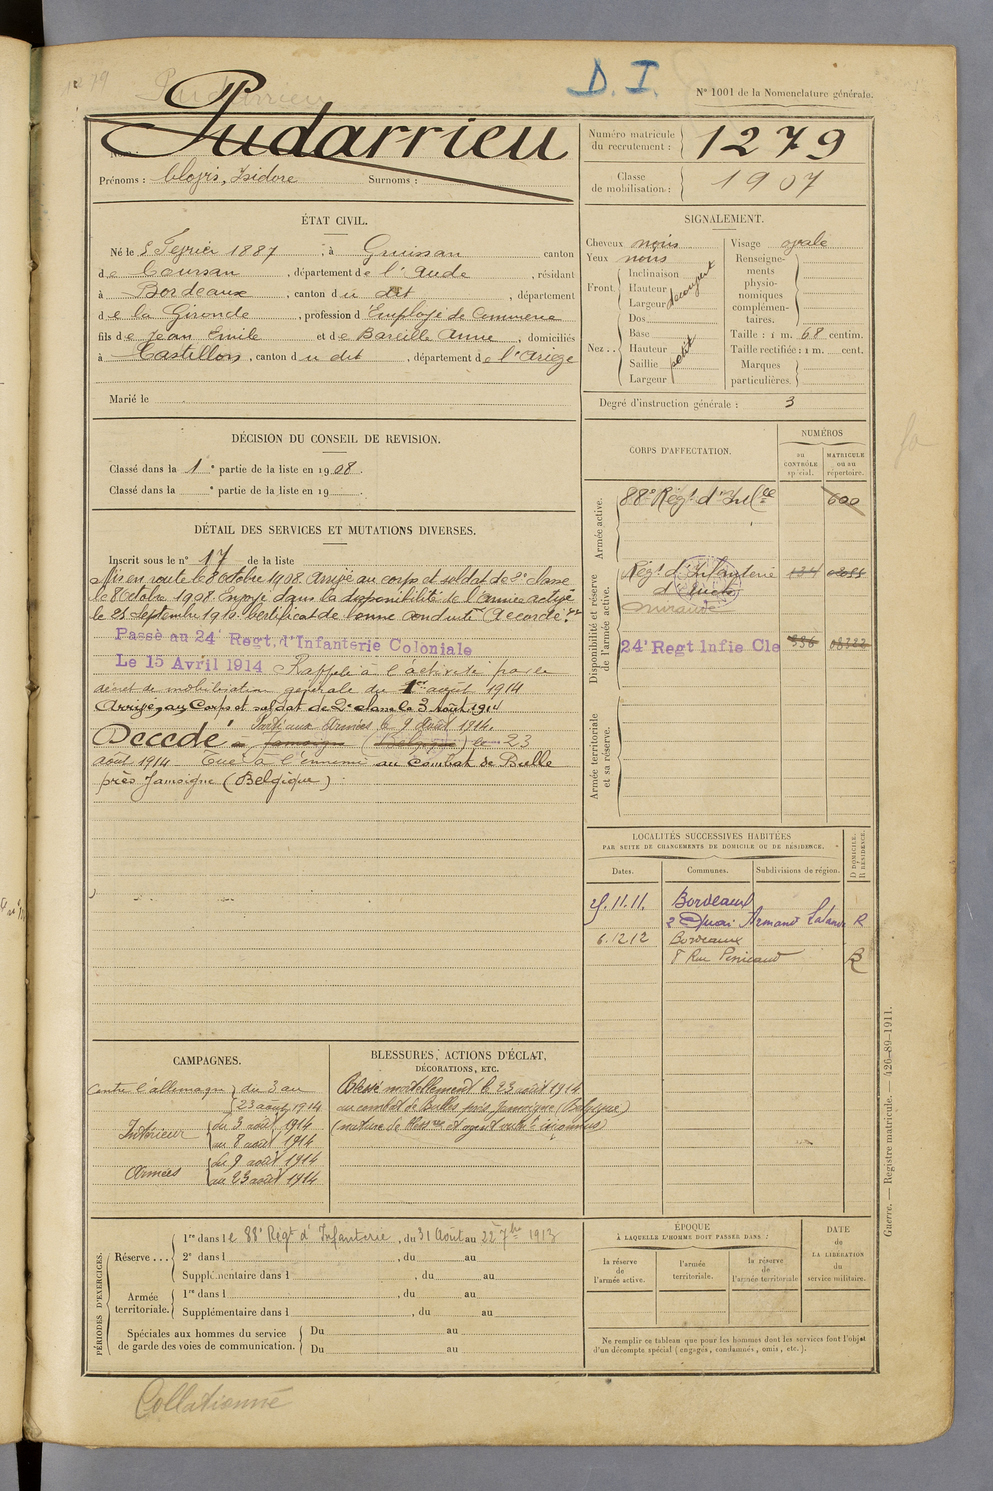 1279
Pudarrieu
D. I.
N° 1001 de la Nomenclature générale.
Nom :
Pudarrieu
Prénoms : Clovis, Isidore Surnoms :
Numéro matricule du recrutement : 1279
Classe de mobilisation : 1907
ÉTAT CIVIL.
Né le 5 Février 1887, à Gruissan canton
de Coursan, département de l'Aude, résidant
à Bordeaux, canton du dit, département
de la Gironde, profession d'Employé de Commerce
fils de Jean Emile et de Bareille Anne, domiciliés
à Castillon, canton du dit, département de l'Ariège
Marié le
SIGNALEMENT.
Cheveux noirs
Yeux noirs
Front
Inclinaison
Hauteur
Largeur
découvert
Nez
Dos
Base
Hauteur
Saillie
Largeur
petit
Visage ovale
Renseignements physionomiques complémentaires.
Taille : 1 m. 68 centim.
Taille rectifiée : 1 m. cent.
Marques particulières.
Degré d'instruction générale : 3
DÉCISION DU CONSEIL DE REVISION.
Classé dans la 1e partie de la liste en 1908.
Classé dans la e partie de la liste en 19
DÉTAIL DES SERVICES ET MUTATIONS DIVERSES.
Inscrit sous le n° 17 de la liste
Mis en route le 8 octobre 1908. Arrivé au corps et soldat de 2e classe
le 8 octobre 1908. Envoyé dans la disponibilité de l'armée active
le 25 Septembre 1910. Certificat de bonne conduite Accordé.
Passé au 24e Regt. d'Infanterie Coloniale
Le 15 Avril 1914 Rappelé à l'activité par le
décret de mobilisation générale du 1er août 1914
Arrivé au Corps et soldat de 2e classe le 3 Août 1914
Parti aux Armées le 9 Août 1914.
Décédé à Jamoigne (Belgique) le 23
août 1914 Tué à l'ennemi au combat de Bulle
près Jamoigne (Belgique)
CORPS D'AFFECTATION.
NUMÉROS
AU CONTRÔLE spécial.
MATRICULE ou au répertoire.
Armée active.
88e Régt d'Infie
600
Disponibilité et réserve de l'armée active.
Régt d'Infanterie
d'Auch
Mirande
24e Regt Infie Cle
336
Armée territoriale et sa réserve.
LOCALITÉS SUCCESSIVES HABITÉES
PAR SUITE DE CHANGEMENTS DE DOMICILE OU DE RÉSIDENCE.
D DOMICILE. R RÉSIDENCE.
Dates. Communes. Subdivisions de région.
25.11.11. Bordeaux
2 Quai Armand Lalande R
6.12.12 Bordeaux
8 Rue R
CAMPAGNES.
Contre l'allemagne du 3 au
23 août 1914
Intérieur du 3 août 1914
au 8 août 1914
Armées du 9 août 1914
au 23 août 1914
BLESSURES, ACTIONS D'ÉCLAT,
DÉCORATIONS, ETC.
Blessé mortellement le 23 août 1914
au combat de Bulles près Jamoigne (Belgique)
(nature de bless're et agent vuln't inconnus)
PÉRIODES D'EXERCICES.
Réserve ... 1re dans le 88e Régt d'Infanterie, du 31 Août au 22 7bre 1913
2e dans l , du au
Supplémentaire dans l , du au
Armée territoriale. 1re dans l , du au
Supplémentaire dans l , du au
Spéciales aux hommes du service de garde des voies de communication. Du au
Du au
ÉPOQUE
À LAQUELLE L'HOMME DOIT PASSER DANS :
la réserve de l'armée active.
l'armée territoriale.
la réserve de l'armée territoriale
DATE
de
LA LIBÉRATION
du
service militaire.
Ne remplir ce tableau que pour les hommes dont les services font l'objet
d'un décompte spécial (engagés, condamnés, omis, etc.).
Guerre. — Registre matricule. — 426-89-1911.
Collationné